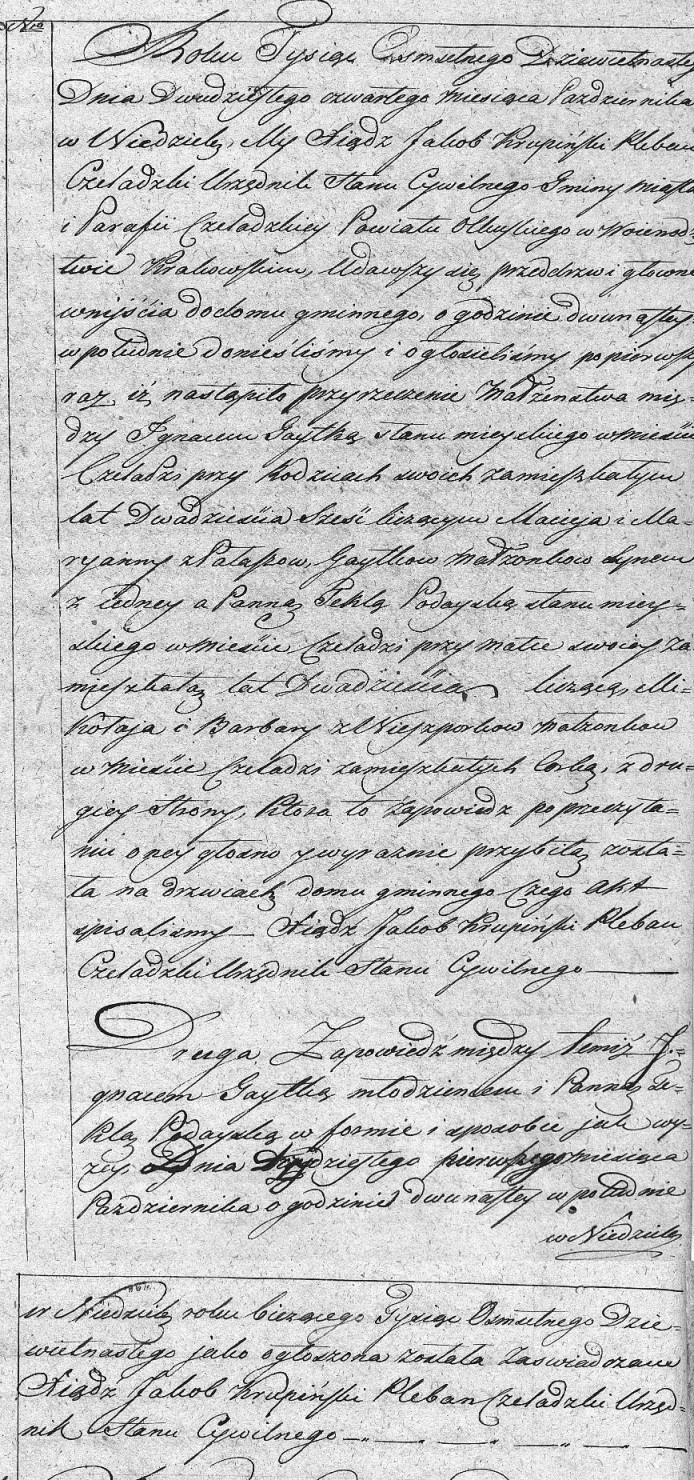 Nro
Roku Tysiąc Osmsetnego Dziewietnastego
Dnia Dwudziestego czwartego miesiąca Pazdziernika
w Niedzielę, My Xiądz Jakob Krupiński Pleban
Czeladzki Urzędnik Stanu Cywilnego Gminy miasta
i Parafii Czeladzkiey Powiatu Olkuskiego w Woiewodz-
twie Krakowskim, Udawszy się przed drzwi głowne
wniyścia do domu gminnego, o godzinie dwunastey
w południe donieśliśmy i ogłosieliśmy po pierwszy
raz, iż nastąpiło przyrzeczenie Małżenstwa mię-
dzy Ignacem Gaytką stanu mieyskiego w mieście
Czeladzi przy Rodzicach swoich zamieszkałym
lat Dwadzieścia Sześć liczącym Macieja i Ma-
ryanny z Gaytkow małżonkow Synem
z iedney a Panną Teklą stanu miey-
skiego w mieście Czeladzi przy matce swoiey Za
mieszkałą lat Dwadzieścia liczącą, Mi-
kołaja i Barbary z Nieszporkow małzonkow
w mieście Czeladzi zamieszkałych Corką, z dru-
giey Strony, Ktora to Zapowiedz po przeczyta-
niu oney głosno y wyraznie przybitą zosta-
ła na drzwiach domu gminnego Czego Akt
spisaliśmy — Xiądz Jakob Krupiński Pleban
Czeladzki Urzędnik Stanu Cywilnego —
Druga Zapowiedź między temiż I-
gnacem Gaytką młodzieniem i Panną Te-
klą w formie i sposobie jak wy-
żey Dnia pierwszego miesiąca
Pazdziernika o godzinie dwunastey w południe
w Niedzielę
w Niedzielę roku bieżącego Tysiąc Osmsetnego Dzie-
wietnastego jako ogłoszona została Zaswiadczam
Xiądz Jakob Krupiński Pleban Czeladzki Urzęd-
nik Stanu Cywilnego —